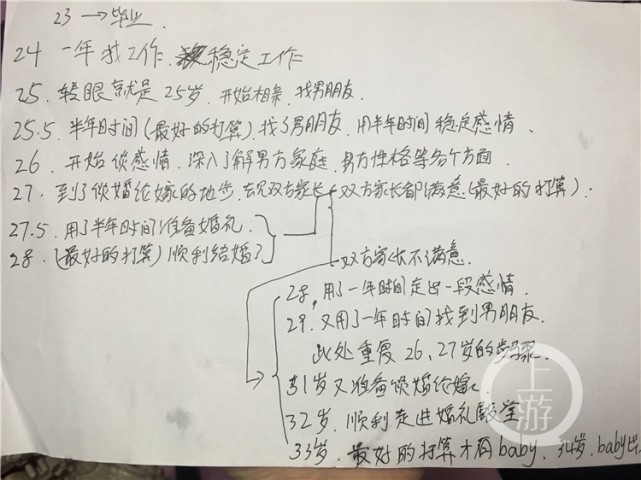 23 → 毕业.
24 一年找工作. 稳定工作
25. 转眼就是25岁. 开始相亲. 找男朋友.
25.5. 半年时间(最好的打算). 找了男朋友. 用半年时间稳定感情.
26. 开始谈感情. 深入了解男方家庭. 男方性格等各个方面.
27. 到了谈婚论嫁的地步. 去见双方家长 双方家长都满意(最好的打算).
27.5. 用了半年时间准备婚礼.
28. (最好的打算) 顺利结婚了
双方家长不满意.
28. 用了一年时间走出一段感情.
29. 又用了一年时间找到男朋友.
此处重复26、27岁的步骤.
31岁又准备谈婚论嫁.
32岁. 顺利走进婚礼殿堂
33岁. 最好的打算才有baby. 34岁. baby出
上游